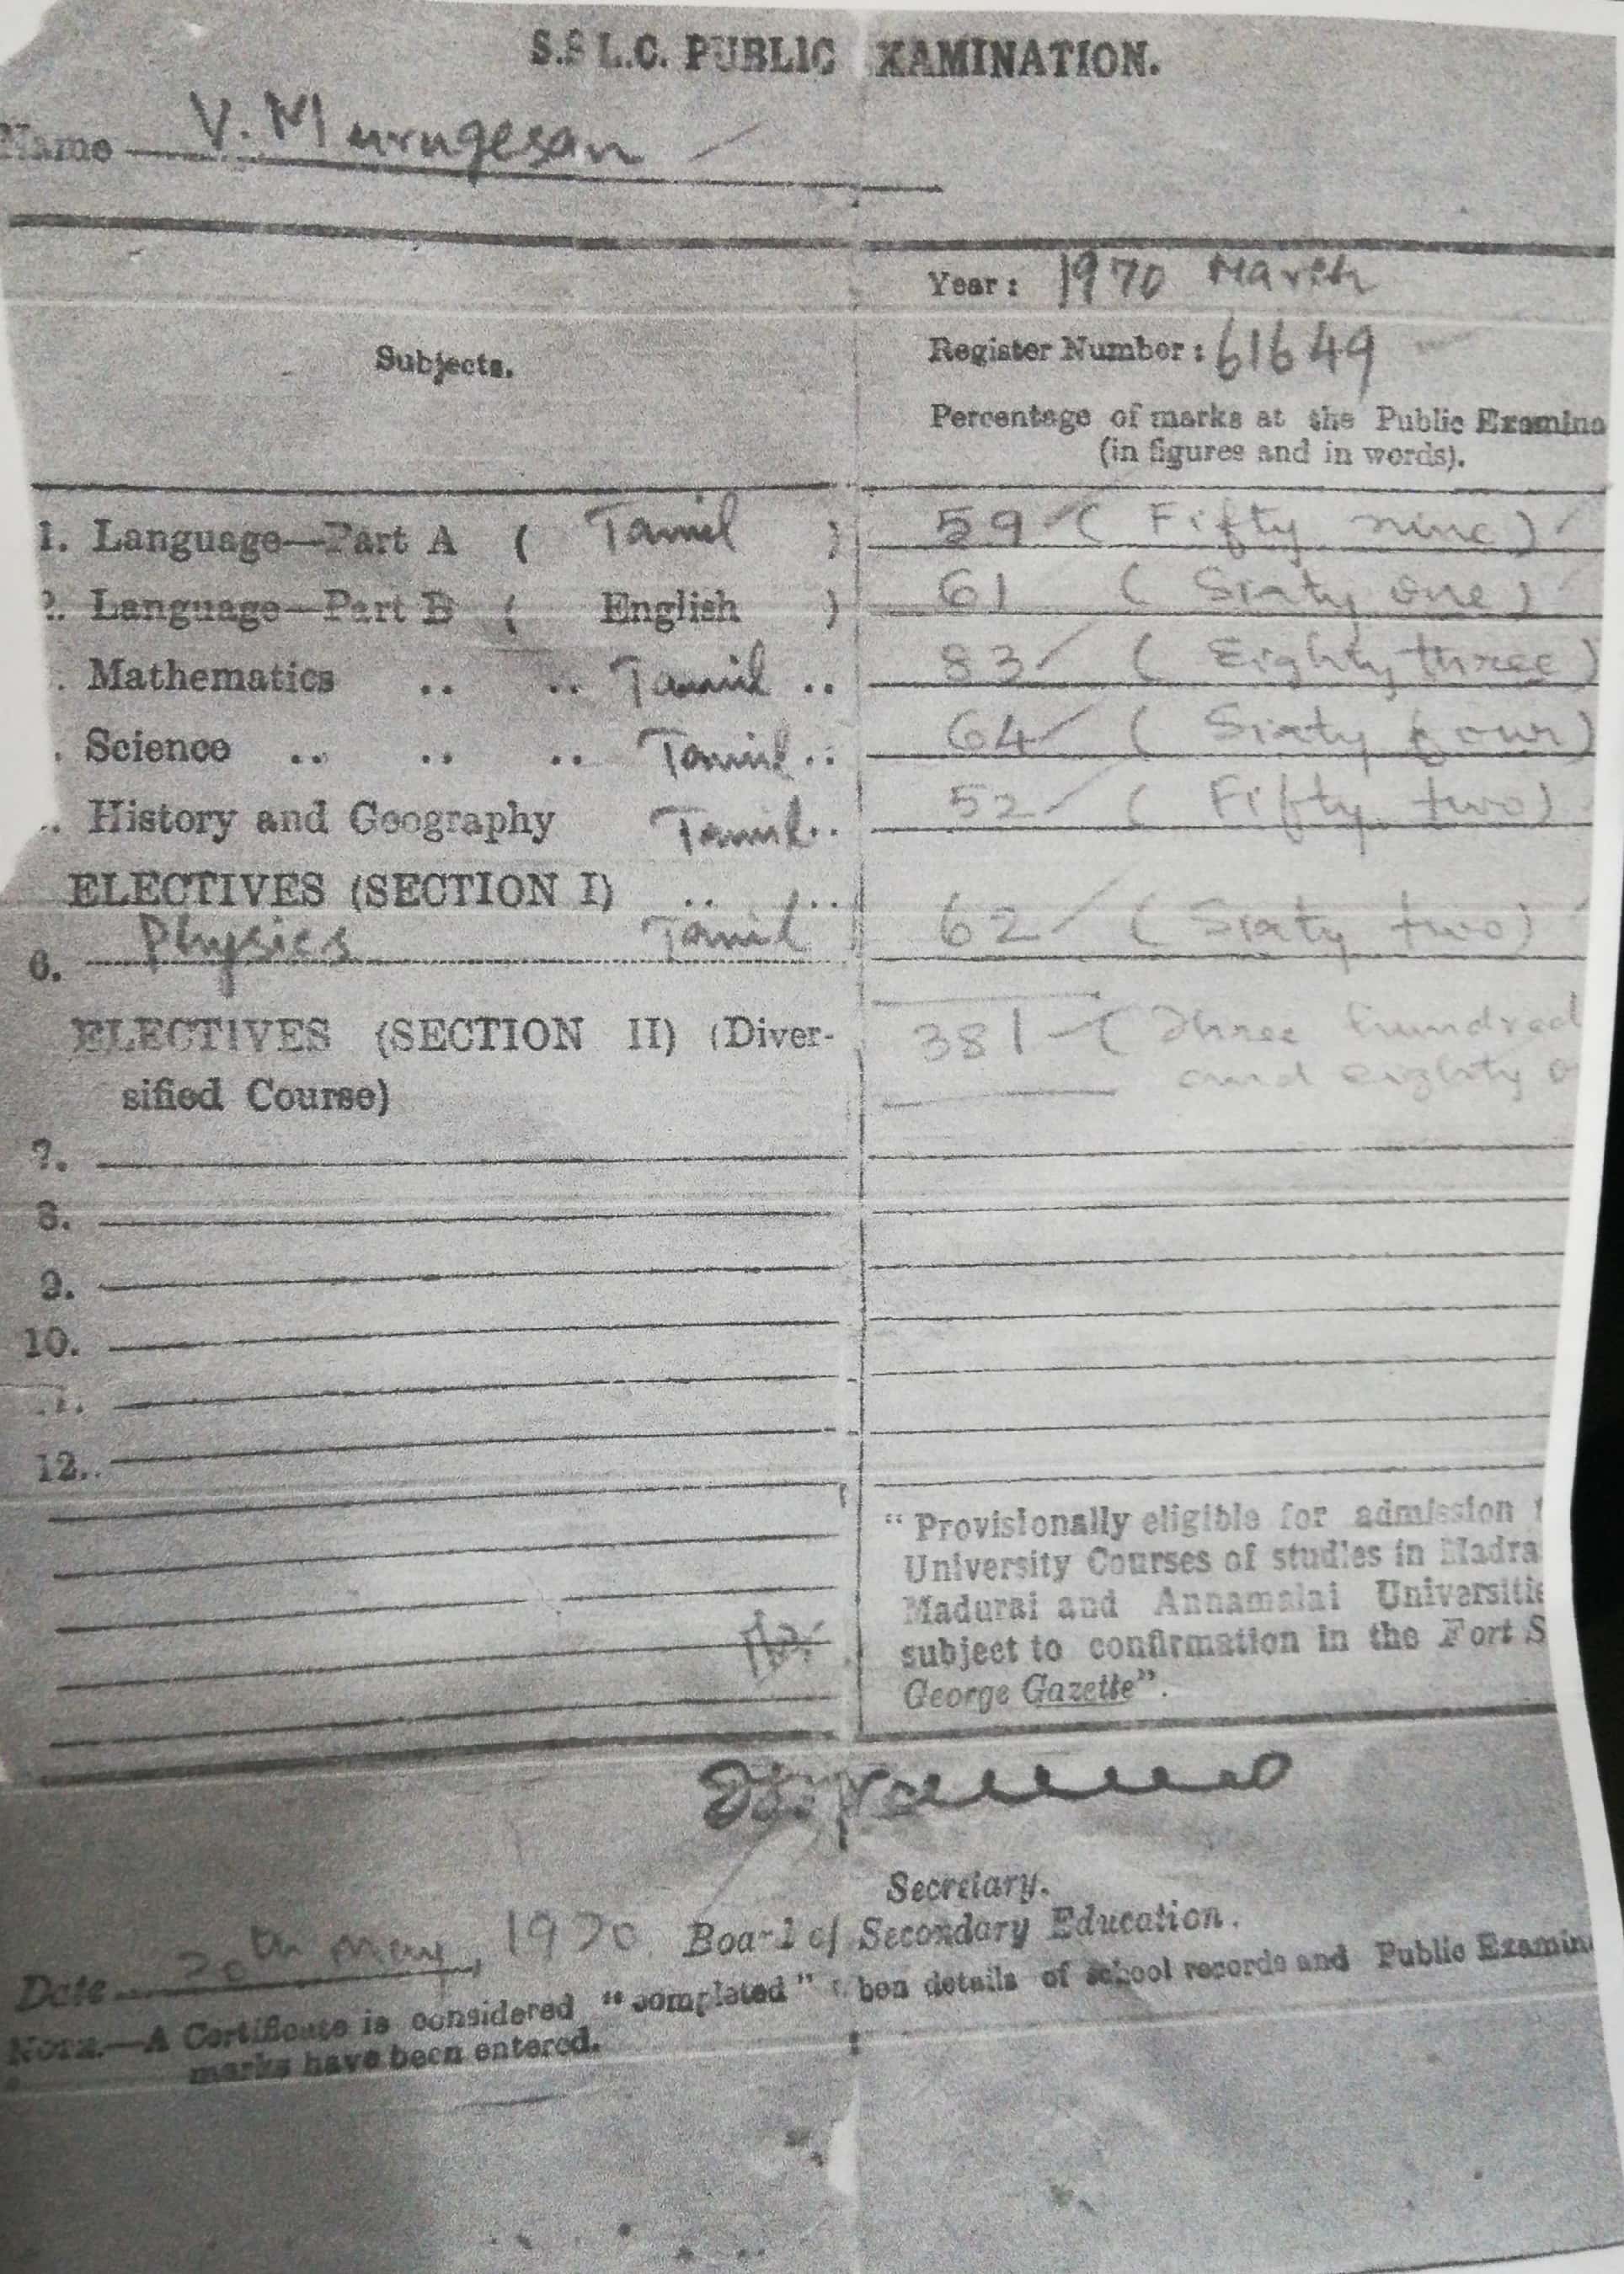 S.S.L.C. PUBLIC EXAMINATION.
Name V. Murugesan
Year : 1970 March
Subjects.
Register Number : 61649
Percentage of marks at the Public Examina
(in figures and in words).
1. Language—Part A ( Tamil ) 59 (Fifty nine)
2. Language—Part B ( English ) 61 (Sixty one)
. Mathematics .. .. Tamil .. 83 (Eighty three)
. Science .. .. .. Tamil .. 64 (Sixty four)
.. History and Geography Tamil .. 52 (Fifty two)
ELECTIVES (SECTION I) .. ..
6. Physics Tamil 62 (Sixty two)
ELECTIVES (SECTION II) (Diver- 381 (Three hundred
sified Course) and eighty o
7.
8.
9.
10.
11.
12.
"Provisionally eligible for admission t
University Courses of studies in Madra
Madurai and Annamalai Universitie
subject to confirmation in the Fort S
George Gazette".
Secretary.
Date 20th May, 1970 Board of Secondary Education.
NOTE.—A Certificate is considered "completed" when details of school records and Public Examin
marks have been entered.